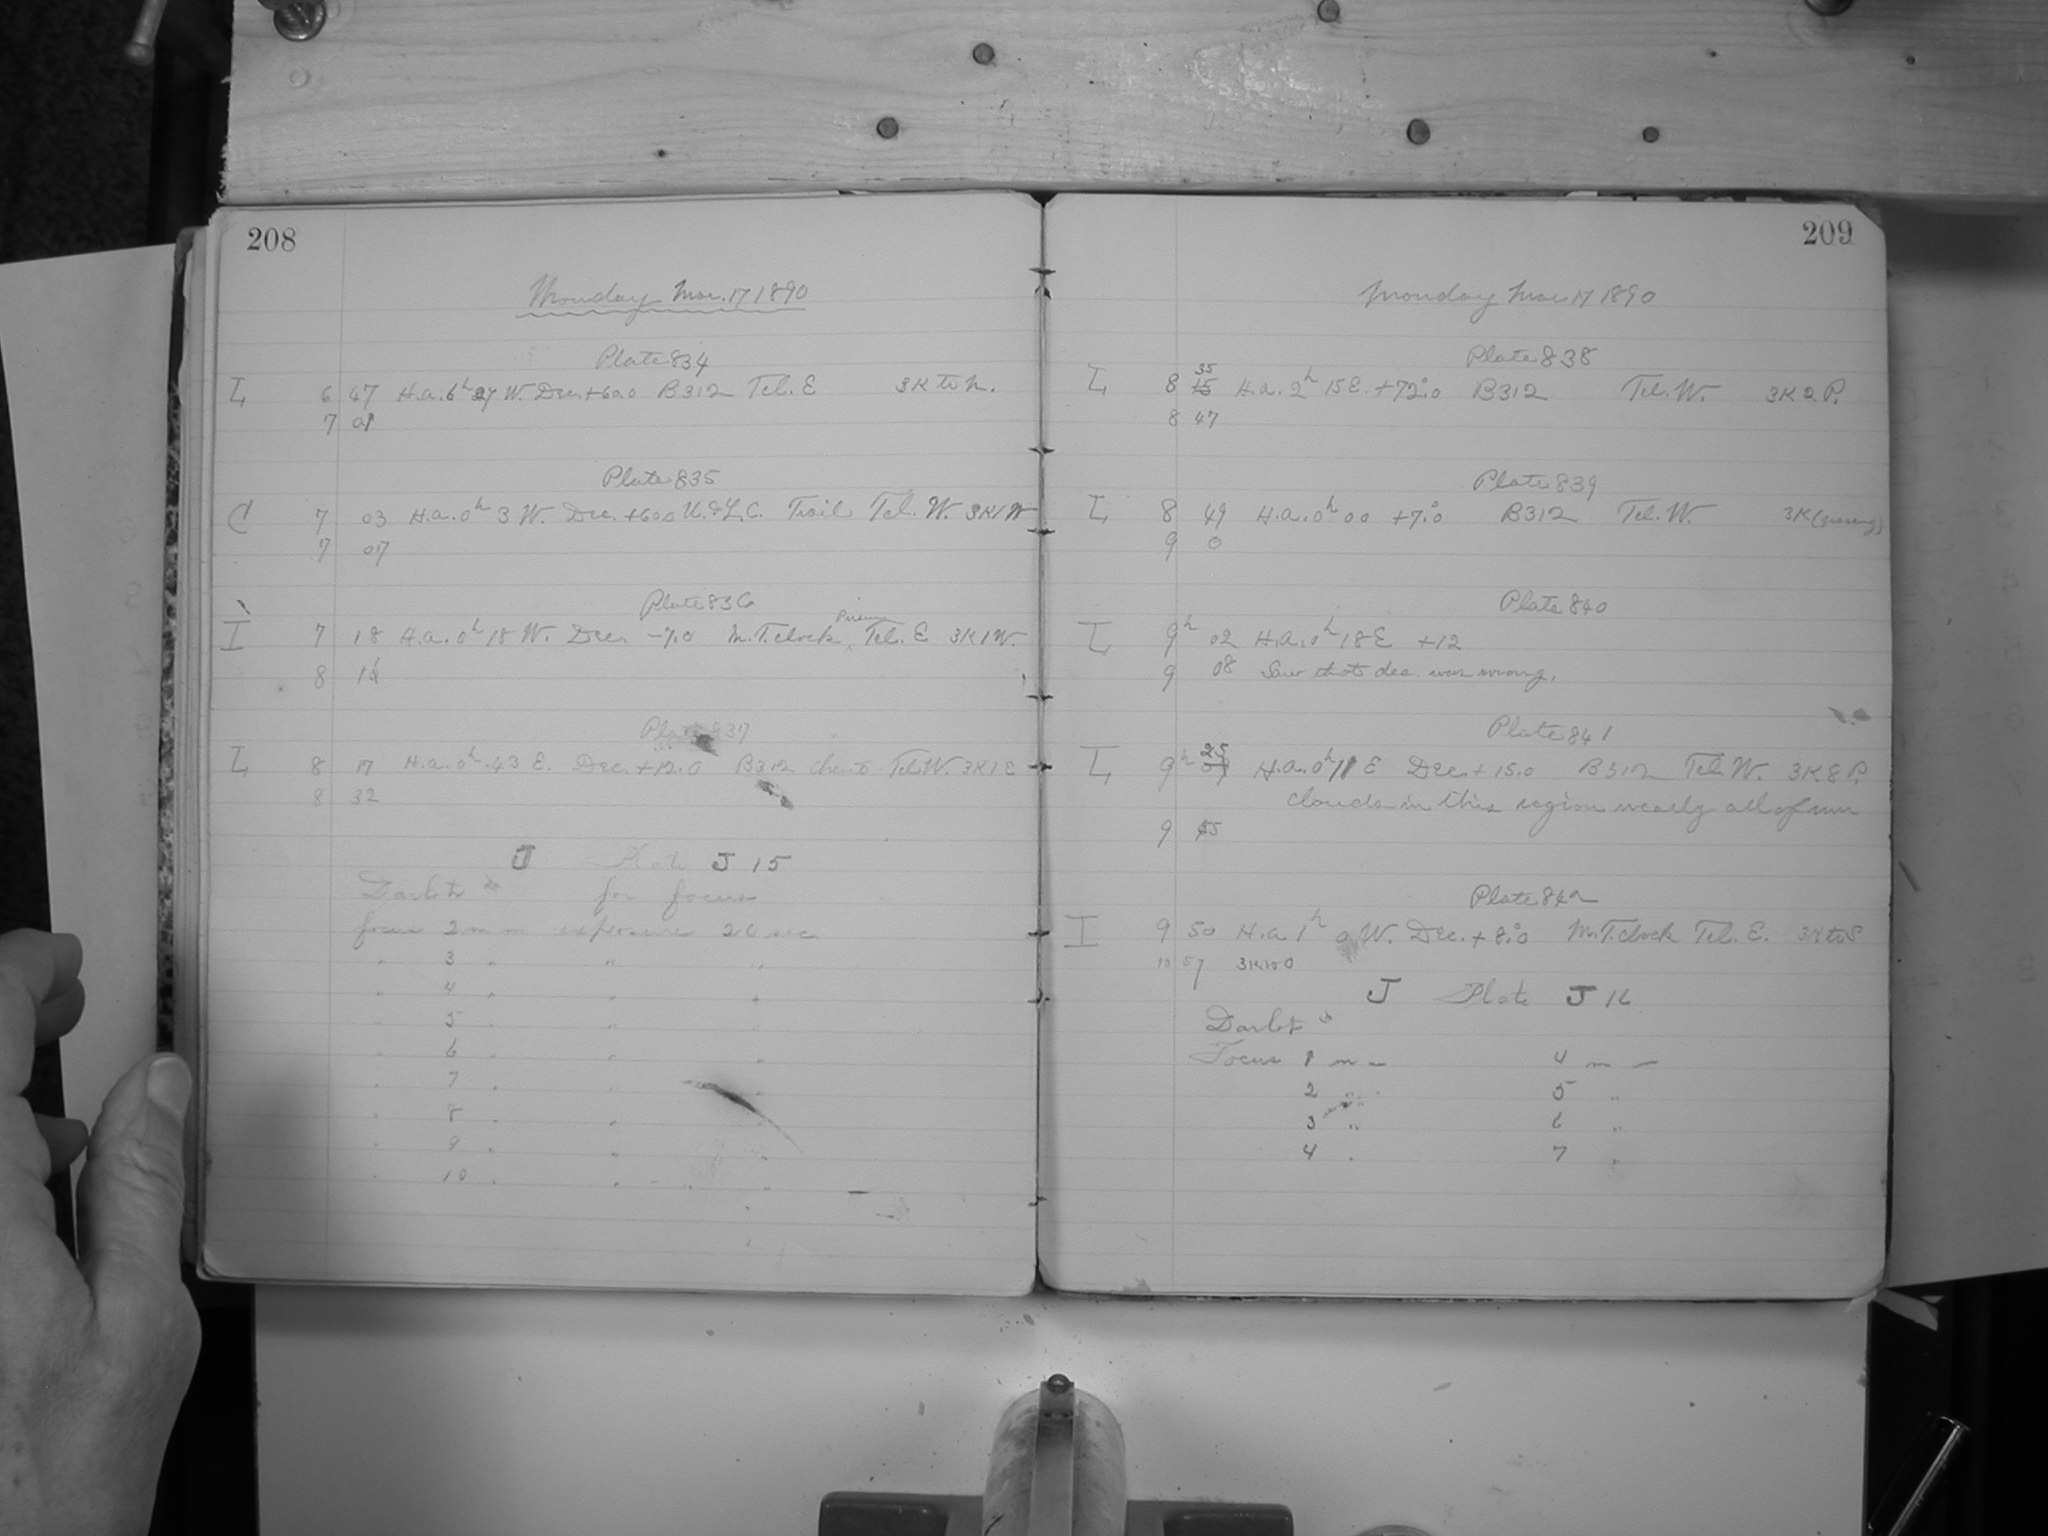 208
Monday Mar. 17 1890
Plate 834
I 6 47 H.a. 6h 27 W. Dec. +60.0 B312 Tel. E 3K to N.
7 01
Plate 835
C 7 03 H.a. 0h 3 W. Dec. +60.0 U.&L.C. Trail Tel. W. 3K1W
7 07
Plate 836
Prism
I 7 18 H.a. 0h 18 W. Dec. -7.0 M.T. clock, Tel. E 3K1W.
8 14
Plate 837
I 8 17 H.a. 0h.43 E. Dec. +12.0 B312 Tel. W. 3K1E
8 32
J Plate J 15
for focus
focus 2 m m exposure 20 sec
" 3 " " "
" 4 " " "
" 5 " " "
" 6 " " "
" 7 " " "
" 8 " " "
" 9 " " "
" 10 " " "
209
Monday Mar 17 1890
Plate 838
35
I 8 15 H.a. 2h 15 E. +72°.0 B312 Tel. W. 3K2P.
8 47
Plate 839
I 8 49 H.a. 0h 00 +7°.0 B312 Tel. W. 3K
9 0
Plate 840
I 9h 02 H.a. 0h 18 E +12
9 08 Saw that dec. was wrong.
Plate 841
25
I 9h 09 H.a. 0h 11 E Dec. +15.0 B312 Tel. W. 3K8P.
clouds in this region nearly all of run
9 45
Plate 842
I 9 50 H.a. 1h 0 W. Dec. +8°.0 M.T. clock Tel. E. 3K to S
10 57 3K10 0
J Plate J 16
Focus 1 m m 4 m m
2 " 5 "
3 " 6 "
4 " 7 "